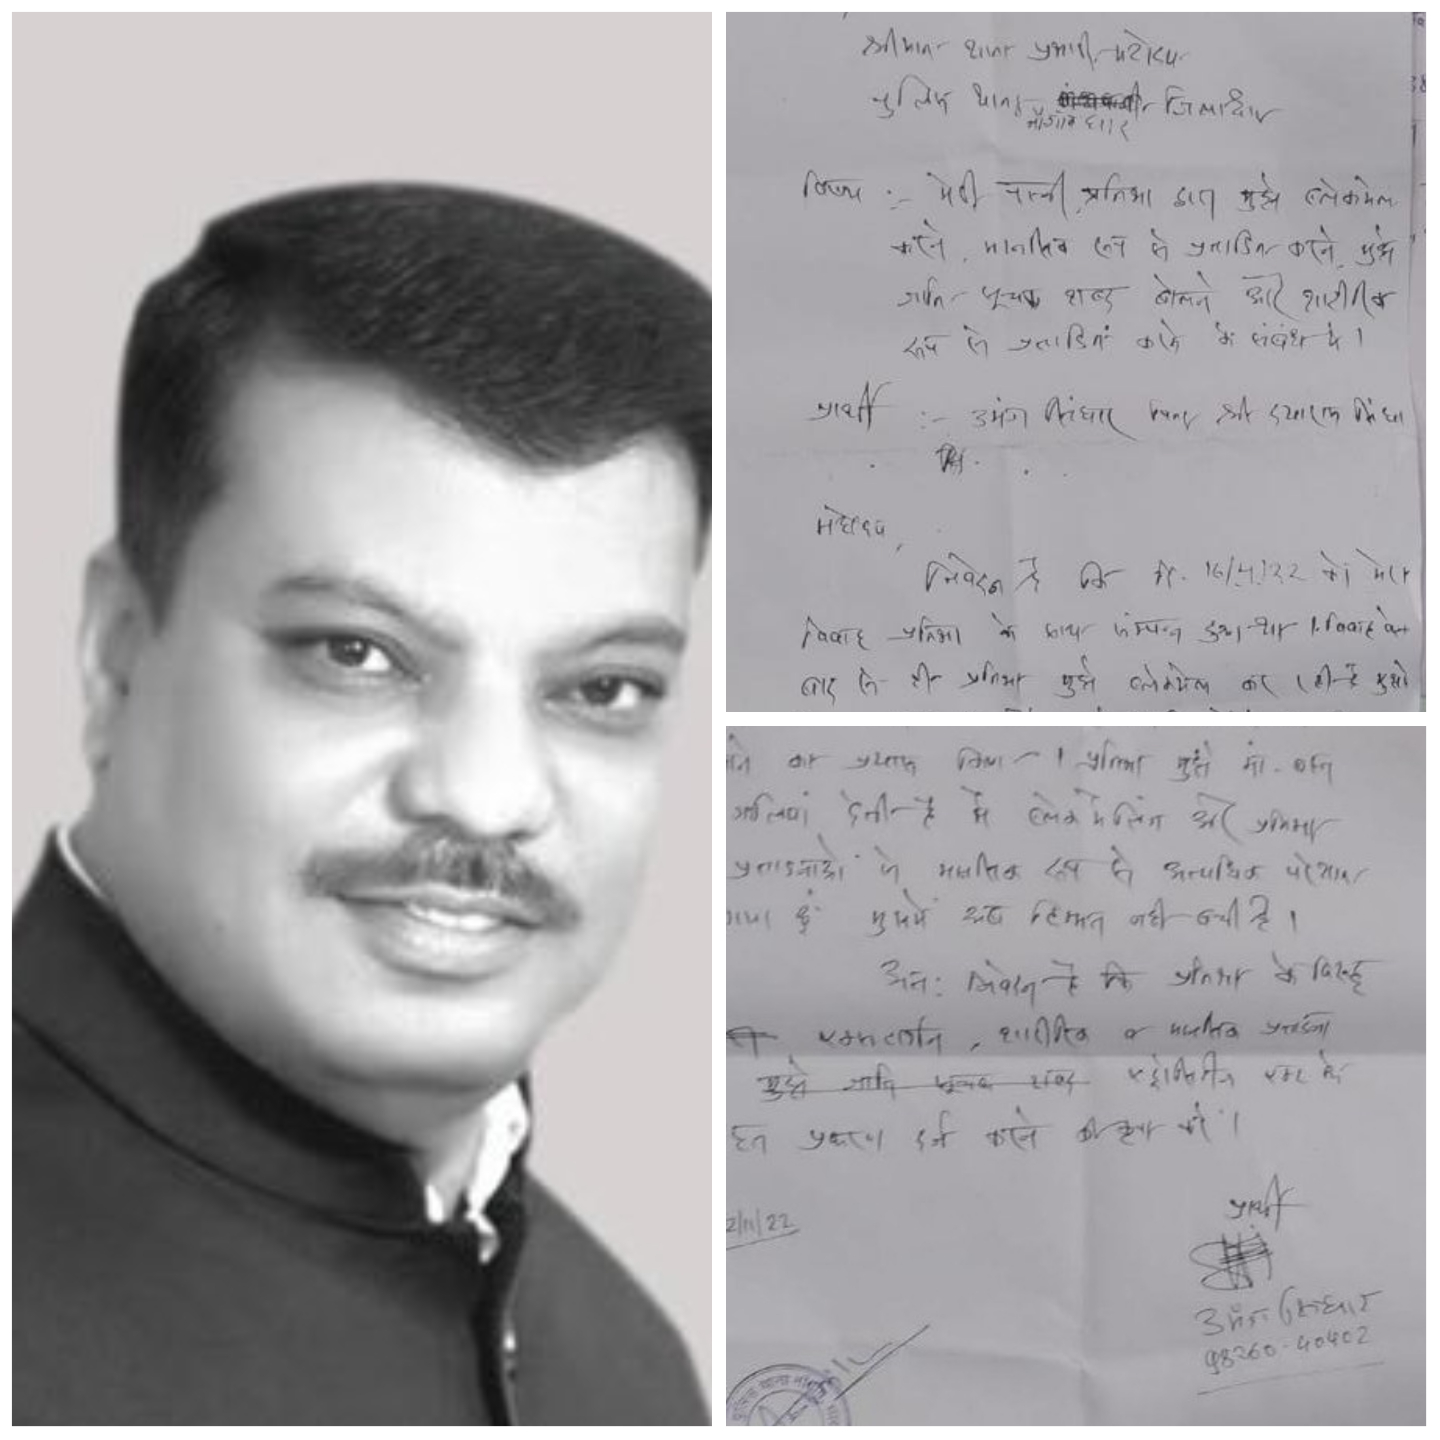 श्रीमान थाना प्रभारी महोदय
पुलिस थाना जिला धार
नौगांव धार
विषय :- मेरी पत्नी प्रतिभा द्वारा मुझे ब्लेकमेल
करने, मानसिक रूप से प्रताडित करने, मुझे
जाति सूचक शब्द बोलने और शारीरिक
रूप से प्रताडित करने के संबंध में।
प्रार्थी :- उमंग सिंघार पिता श्री दयाराम सिंघा
महोदय,
निवेदन है कि दि. 16/4/22 को मेरा
विवाह प्रतिभा के साथ संपन्न हुआ था। विवाह के
बाद से ही प्रतिभा मुझे ब्लेकमेल कर रही है मुझे
का प्रयास किया। प्रतिभा मुझे मां-बहन
गालियां देती है मैं ब्लेकमेलिंग और प्रतिभा
प्रताडनाओं से मानसिक रूप से अत्यधिक परेशान
गया हूं मुझमें अब हिम्मत नही बची है।
अतः निवेदन है कि प्रतिभा के विरूद्ध
शारीरिक व मानसिक प्रताडना
मुझे जाति सूचक शब्द
प्रकरण दर्ज करने की कृपा करें।
2/11/22
प्रार्थी
उमंग सिंघार
98260-40402
पुलिस थाना